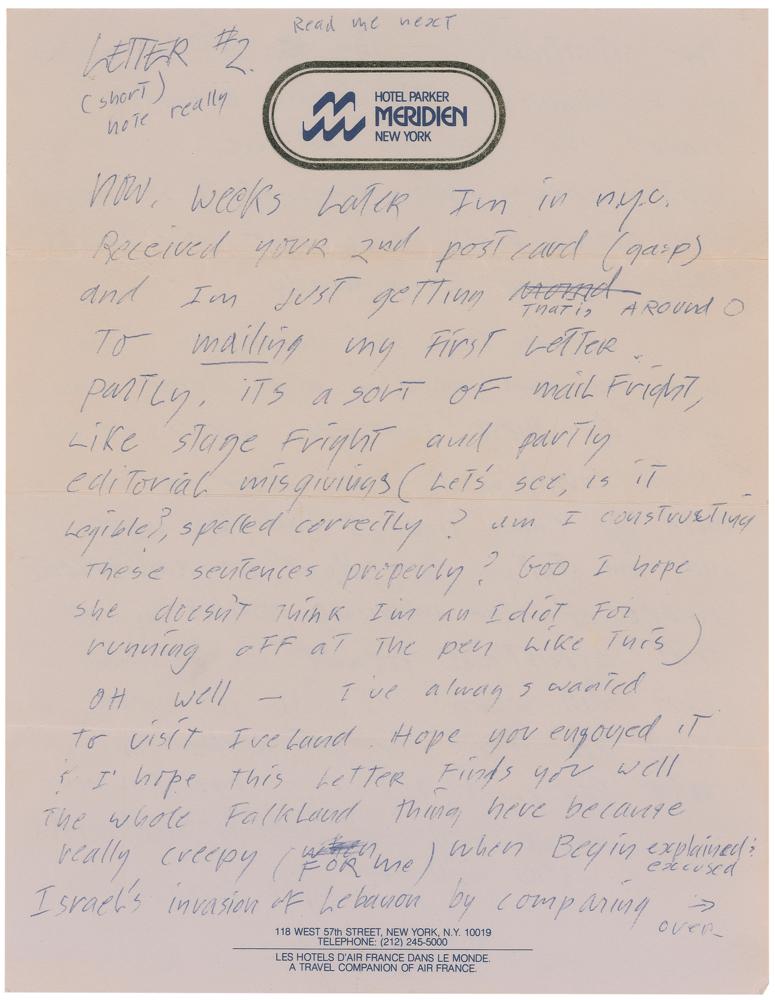 Read me next
LETTER #2
(short)
note really
HOTEL PARKER
MERIDIEN
NEW YORK
NOW, weeks later Im in n.y.c.
Received your 2nd postcard (gasp)
and Im just getting
That is AROUND
To mailing my First Letter.
partly, its a sort of mail Fright,
Like stage Fright and partly
editorial misgivings (Let's see, is it
Legible?, spelled correctly? am I constructing
These sentences properly? GOD I hope
she doesn't Think I'm an Idiot For
running off at the pen Like This)
OH well — I've always wanted
to visit Ireland. Hope you engoyed it
& I hope this Letter Finds you well
The whole Falkland thing here became
really creepy (FOR me) when Begin explained?
excused
Israel's invasion of Lebanon by comparing →
over
118 WEST 57th STREET, NEW YORK, N.Y. 10019
TELEPHONE: (212) 245-5000
LES HOTELS D'AIR FRANCE DANS LE MONDE.
A TRAVEL COMPANION OF AIR FRANCE.